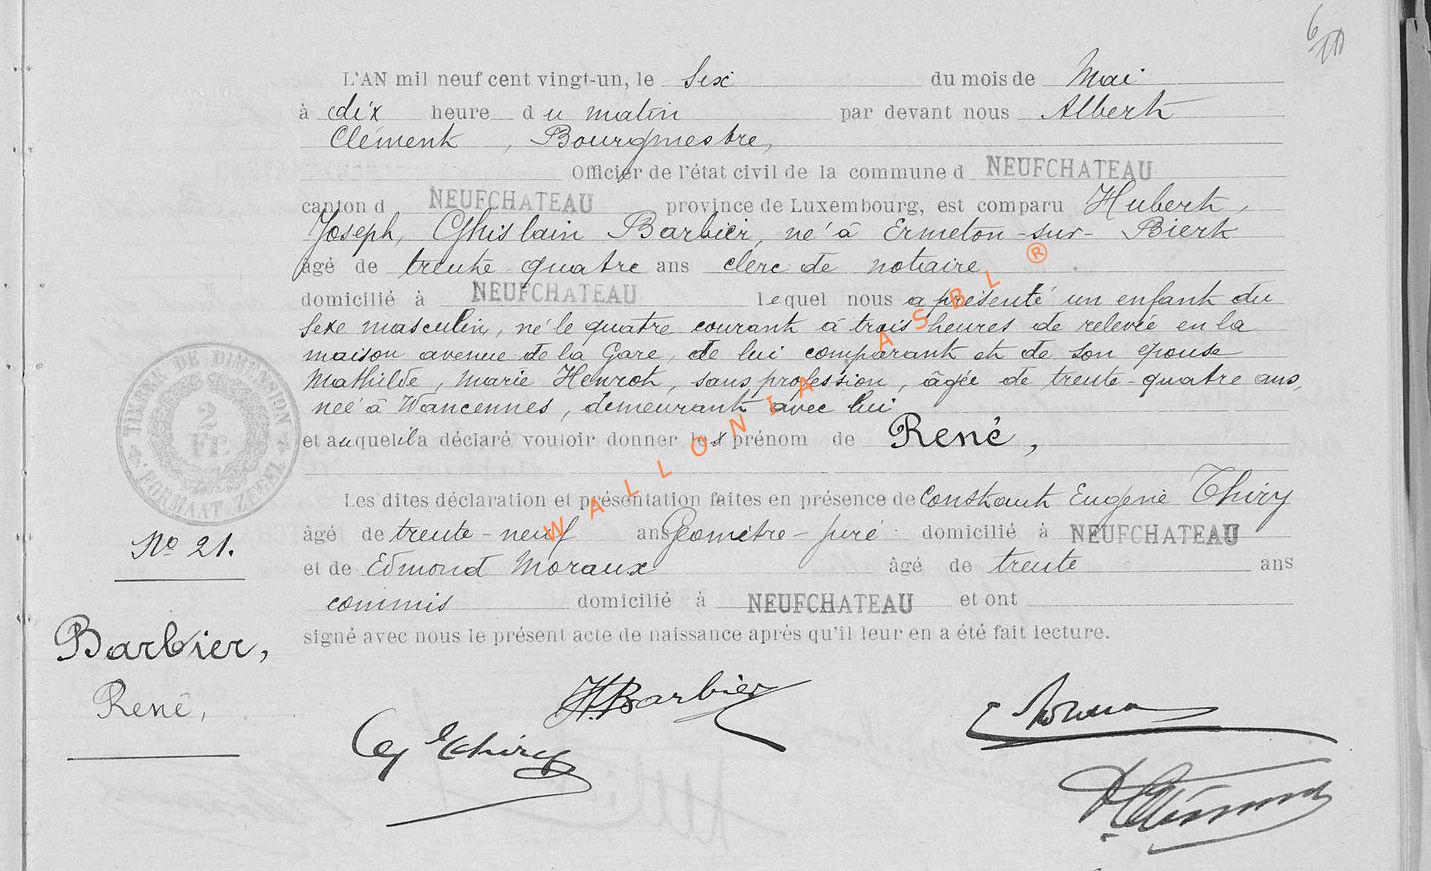 6/10
L'AN mil neuf cent vingt-un, le six du mois de Mai
à dix heure du matin par devant nous Albert
Clément, Bourgmestre,
Officier de l'état civil de la commune d NEUFCHATEAU
canton d NEUFCHATEAU province de Luxembourg, est comparu Hubert,
Joseph, Ghislain Barbier, né à Ermeton-sur-Biert
âgé de trente quatre ans clerc de notaire
domicilié à NEUFCHATEAU lequel nous a présenté un enfant du
sexe masculin, né le quatre courant à trois heures de relevée en la
maison avenue de la Gare, de lui comparant et de son épouse
Mathilde, Marie Henrot, sans profession, âgée de trente-quatre ans,
née à Wancennes, demeurant avec lui
et auquel il a déclaré vouloir donner le prénom de René,
Les dites déclaration et présentation faites en présence de Constant Eugène Thiry
âgé de trente-neuf ans Géomètre-juré domicilié à NEUFCHATEAU
et de Edmond Moraux âgé de trente ans
commis domicilié à NEUFCHATEAU et ont
signé avec nous le présent acte de naissance après qu'il leur en a été fait lecture.
TIMBRE DE DIMENSION
2 Fr.
FORMAAT ZEGEL
No 21.
Barbier,
René,
H. Barbier
Thiry
WALLONIA ASBL ®